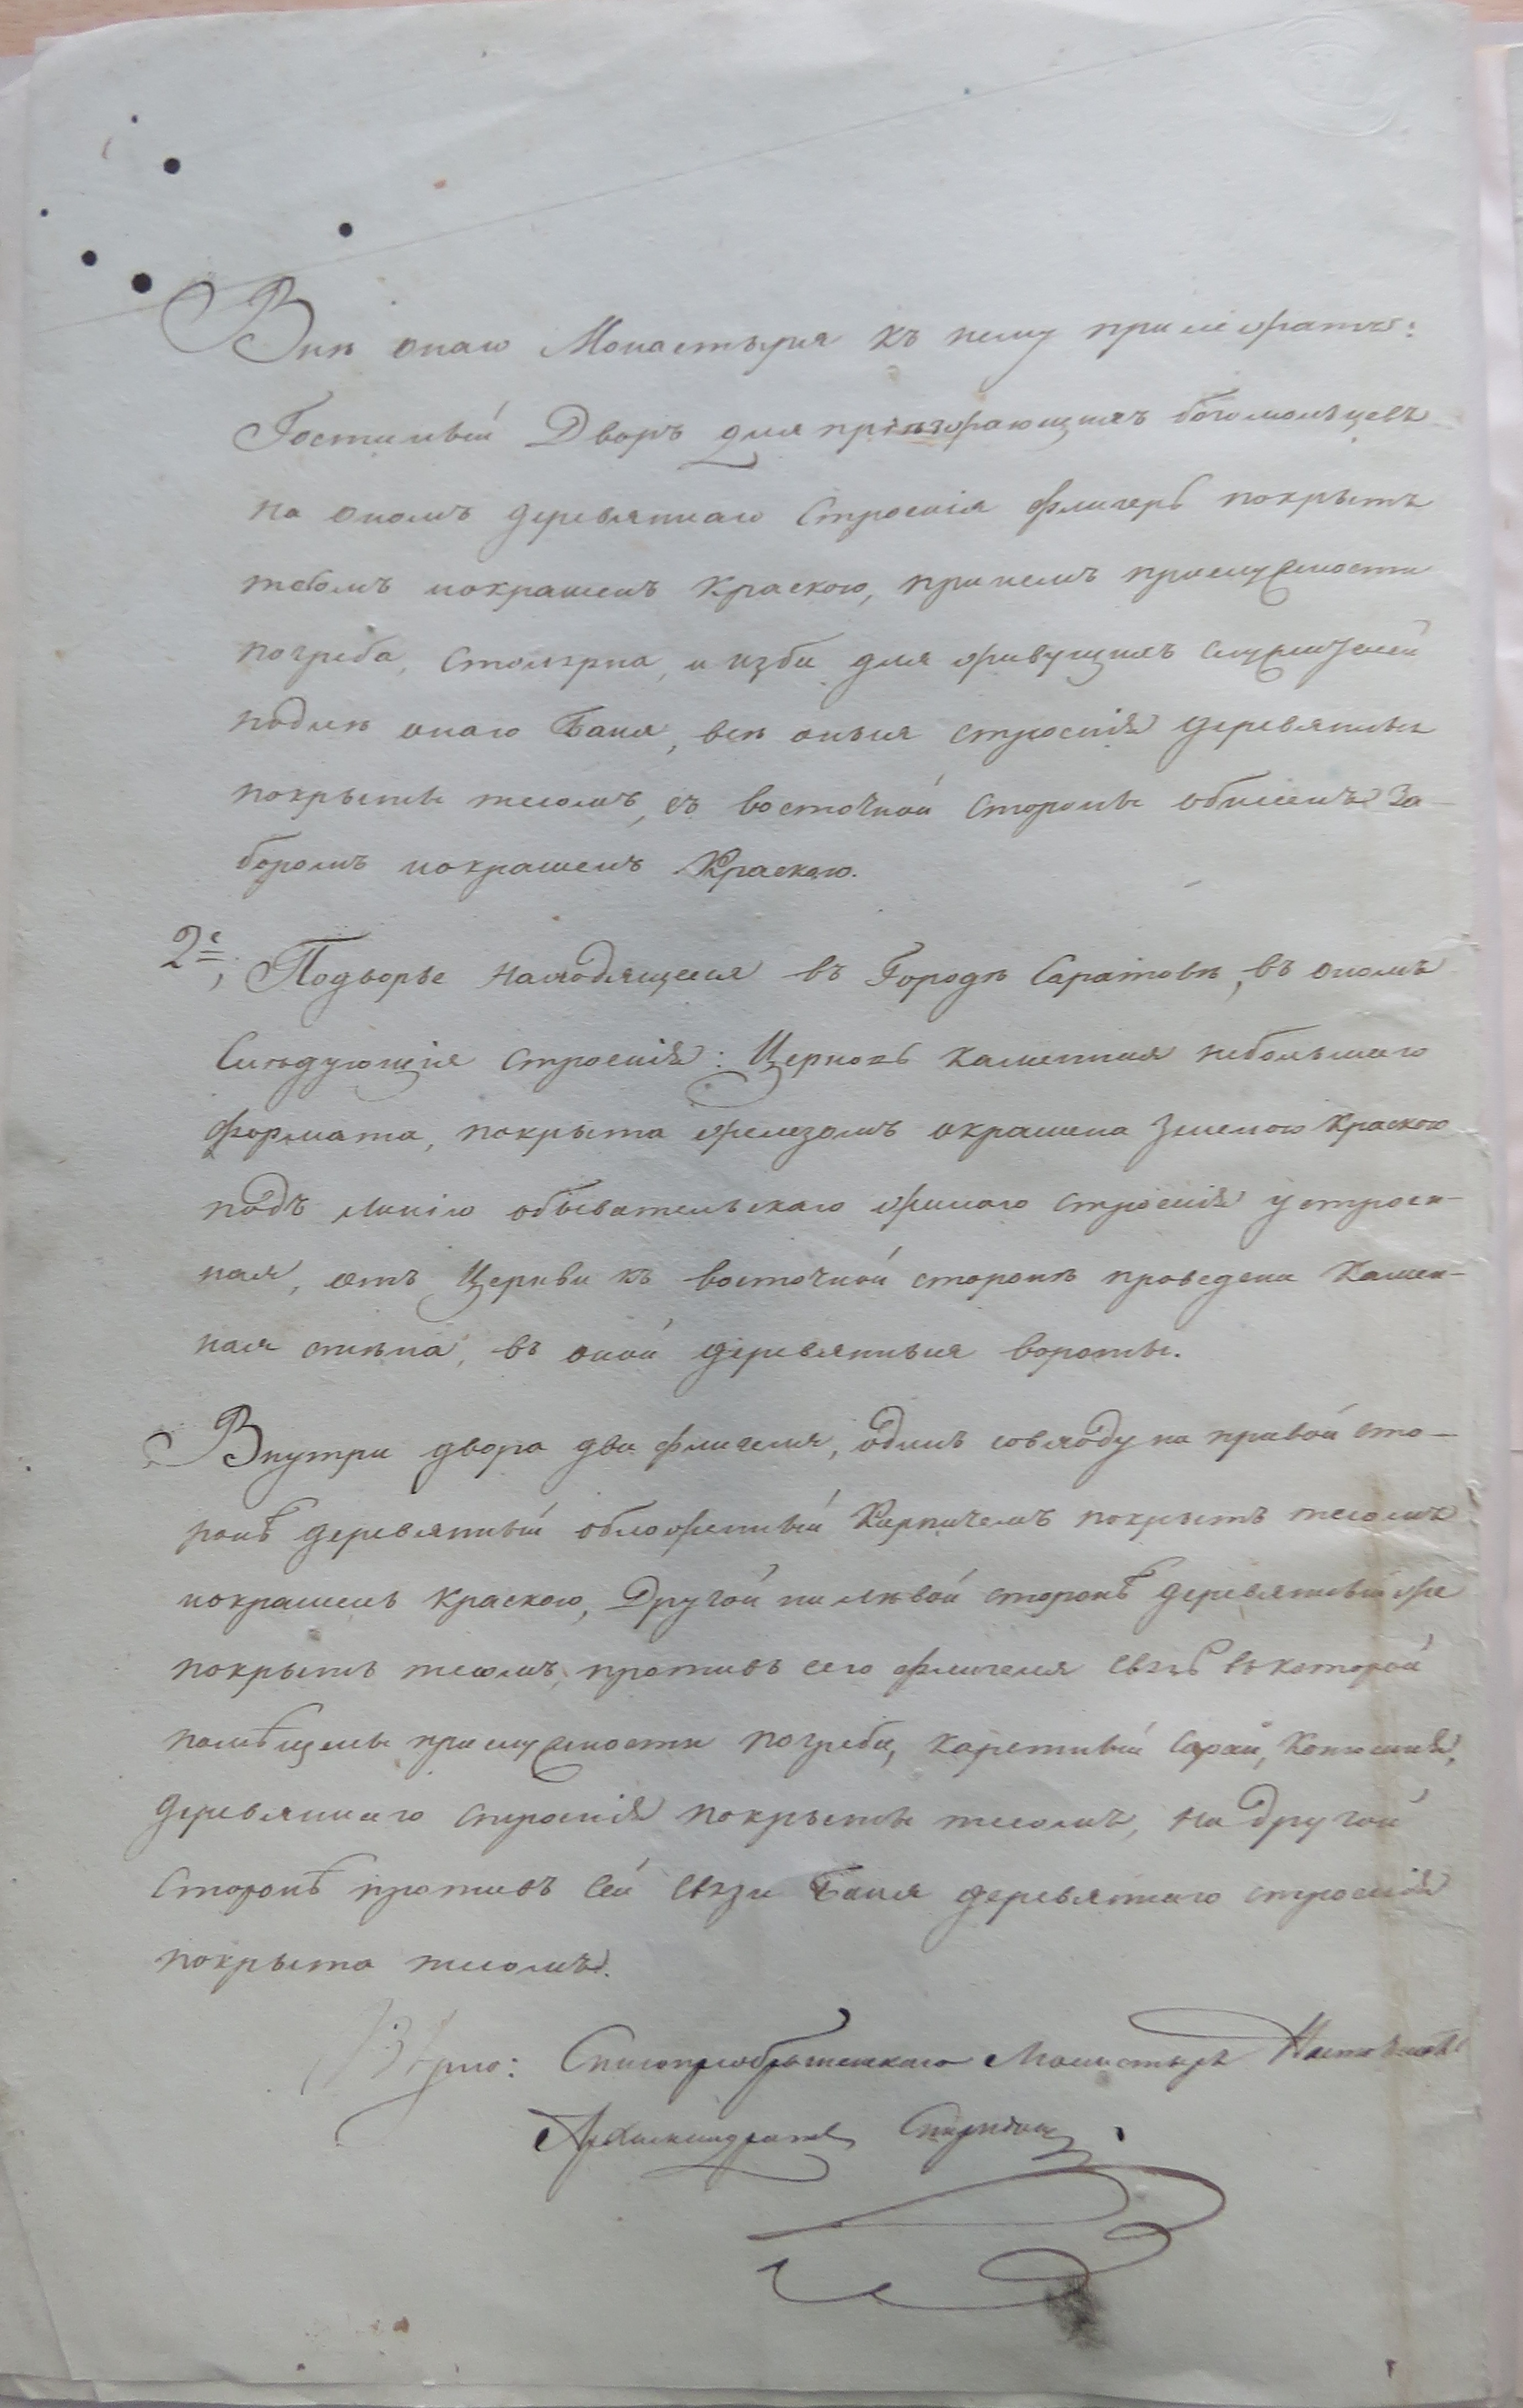 Внѣ онаго Монастыря къ нему принадлежатъ:
Гостиный Дворъ для пріѣзжающихъ богомольцевъ
на ономъ деревяннаго Строенія флигерь покрытъ
тесомъ покрашенъ Краскою, при немъ принужности
погреба, столярна, и избы для живущихъ служителей
подлѣ онаго Баня, всѣ оныя строенія деревянныя
покрыты тесомъ, съ восточной стороны обнесенъ За-
боромъ покрашенъ Краскою.
2е, Подворье находящееся въ Городѣ Саратовѣ, въ ономъ
Слѣдующія строенія: Церковь каменная небольшаго
формата, покрыта желѣзомъ окрашена зеленою Краскою
подъ линію обывательскаго жилаго строенія устроен-
ная, отъ Церкви къ восточной сторонѣ проведена Камен-
ная стѣна, въ оной деревянныя вороты.
Внутри двора два флигеля, одинъ совходу на правой сто-
ронѣ деревянный обложенный Кирпичемъ покрытъ тесомъ
покрашенъ краскою, Другой на лѣвой сторонѣ деревянный же
покрытъ тесомъ, противъ сего флигеля связь въ которой
помѣщены принужности погреба, каретный Сарай, Конюшня,
деревяннаго строенія покрыты тесомъ, на другой
Сторонѣ противъ Сей связи Баня деревяннаго строенія
покрыта тесомъ.
Вѣрно: Спасопреображенскаго Монастыря Настоятель
Архимандритъ Спиридонъ